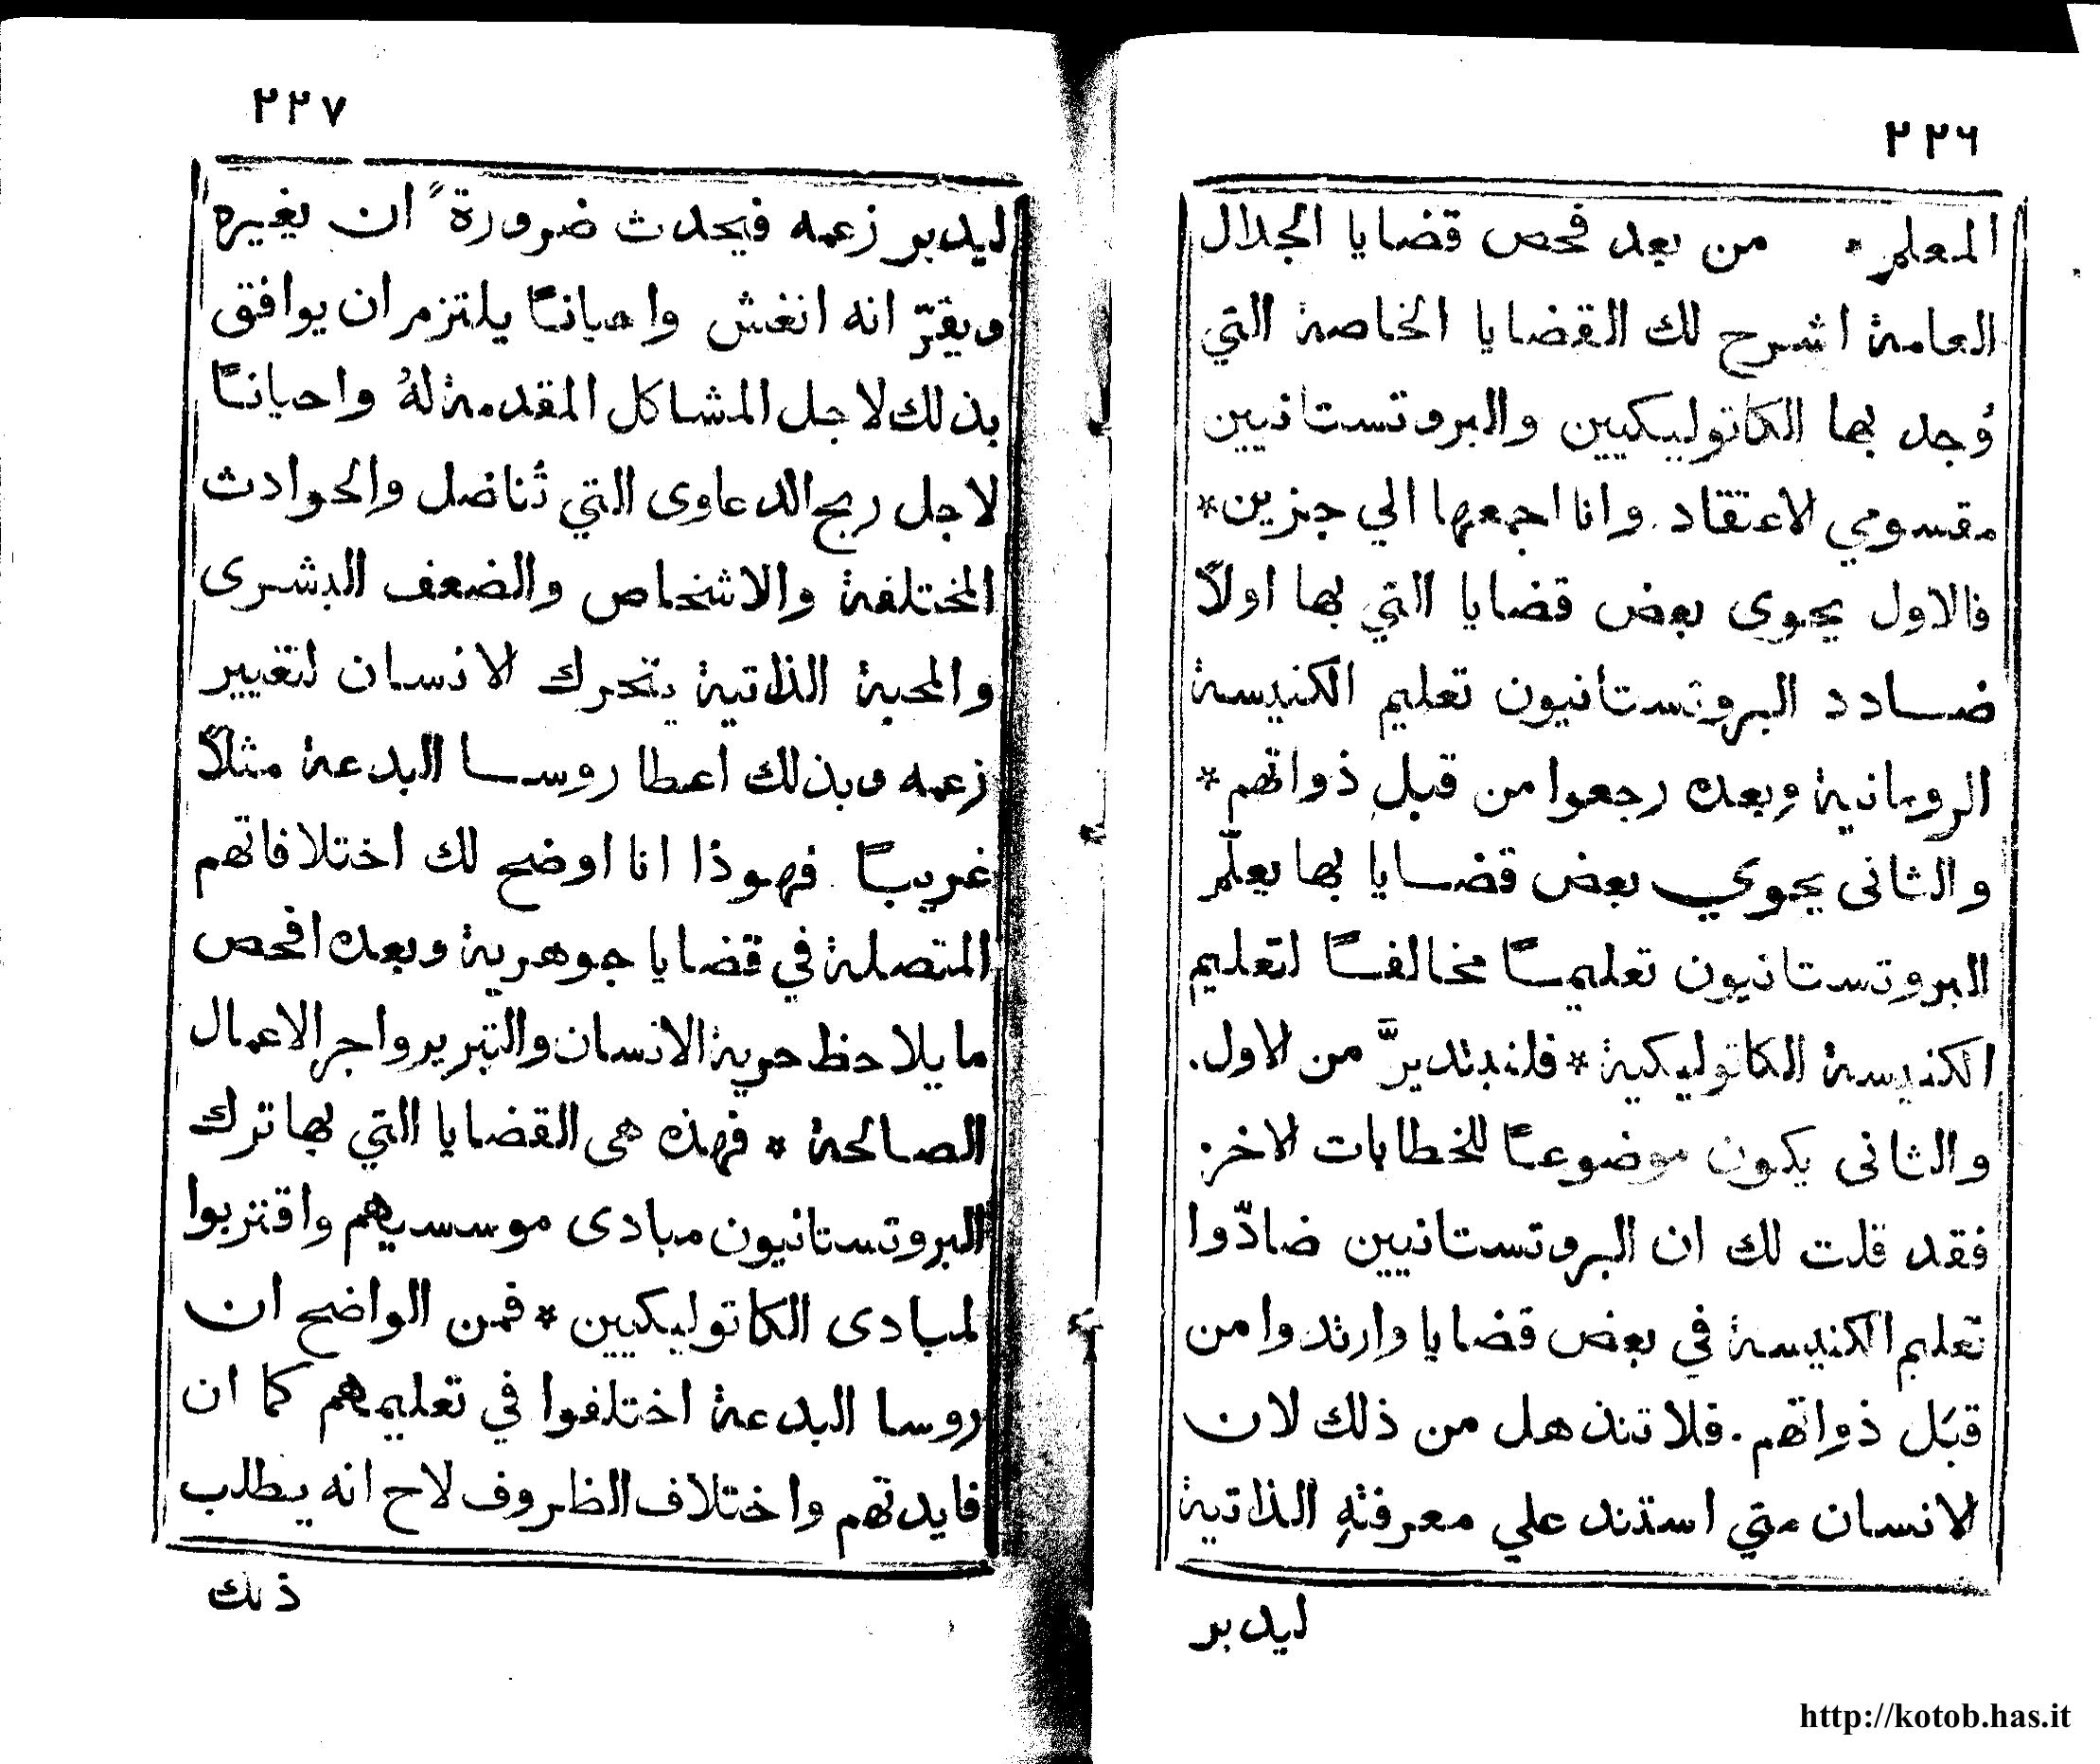 ٢٢٦
المعلم * من بعد فحص قضايا الجدال
العامة اشرح لك القضايا الخاصة التي
وُجد بها الكاتوليكيين والبروتستانيين
مقسومي الاعتقاد. وانا اجمعها الي جزين *
فالاول يحوى بعض قضايا التي بها اولاً
ضادد البروتستانيون تعليم الكنيسة
الرومانية وبعده رجعوا من قبل ذواتهم *
والثانى يحوي بعض قضايا بها يعلّم
البروتستانيون تعليمًا مخالفًا لتعليم
الكنيسة الكاتوليكية * فلنبتدينَّ من الاول.
والثانى يكون موضوعًا للخطابات الاخر.
فقد قلت لك ان البروتستانيين ضادّوا
تعليم الكنيسة في بعض قضايا وارتدوا من
قبَل ذواتهم. فلا تنذهل من ذلك لان
الانسان متي استند علي معرفتهِ الذاتية
ليدبر
٢٢٧
ليدبر زعمه فيحدث ضرورةً ان يغيره
ويقرّ انه انغش واحيانًا يلتزم ان يوافق
بذلك لاجل المشاكل المقدمة لهُ واحيانًا
لاجل ربح الدعاوى التي تُناضل والحوادث
المختلفة والاشخاص والضعف البشرى
والمحبة الذاتية يتحرك الانسان لتغيير
زعمه وبذلك اعطا روسا البدعة مثلاً
غريبًا. فهوذا انا اوضح لك اختلافاتهم
المتصلة في قضايا جوهرية وبعده افحص
ما يلاحظ حرية الانسان والتبرير واجر الاعمال
الصالحة * فهذه هى القضايا التي بها ترك
البروتستانيون مبادى موسسيهم واقتربوا
لمبادى الكاتوليكيين * فمن الواضح ان
روسا البدعة اختلفوا في تعليمهم كما ان
فايدتهم واختلاف الظروف لاح انه يطلب
ذلك
http://kotob.has.it